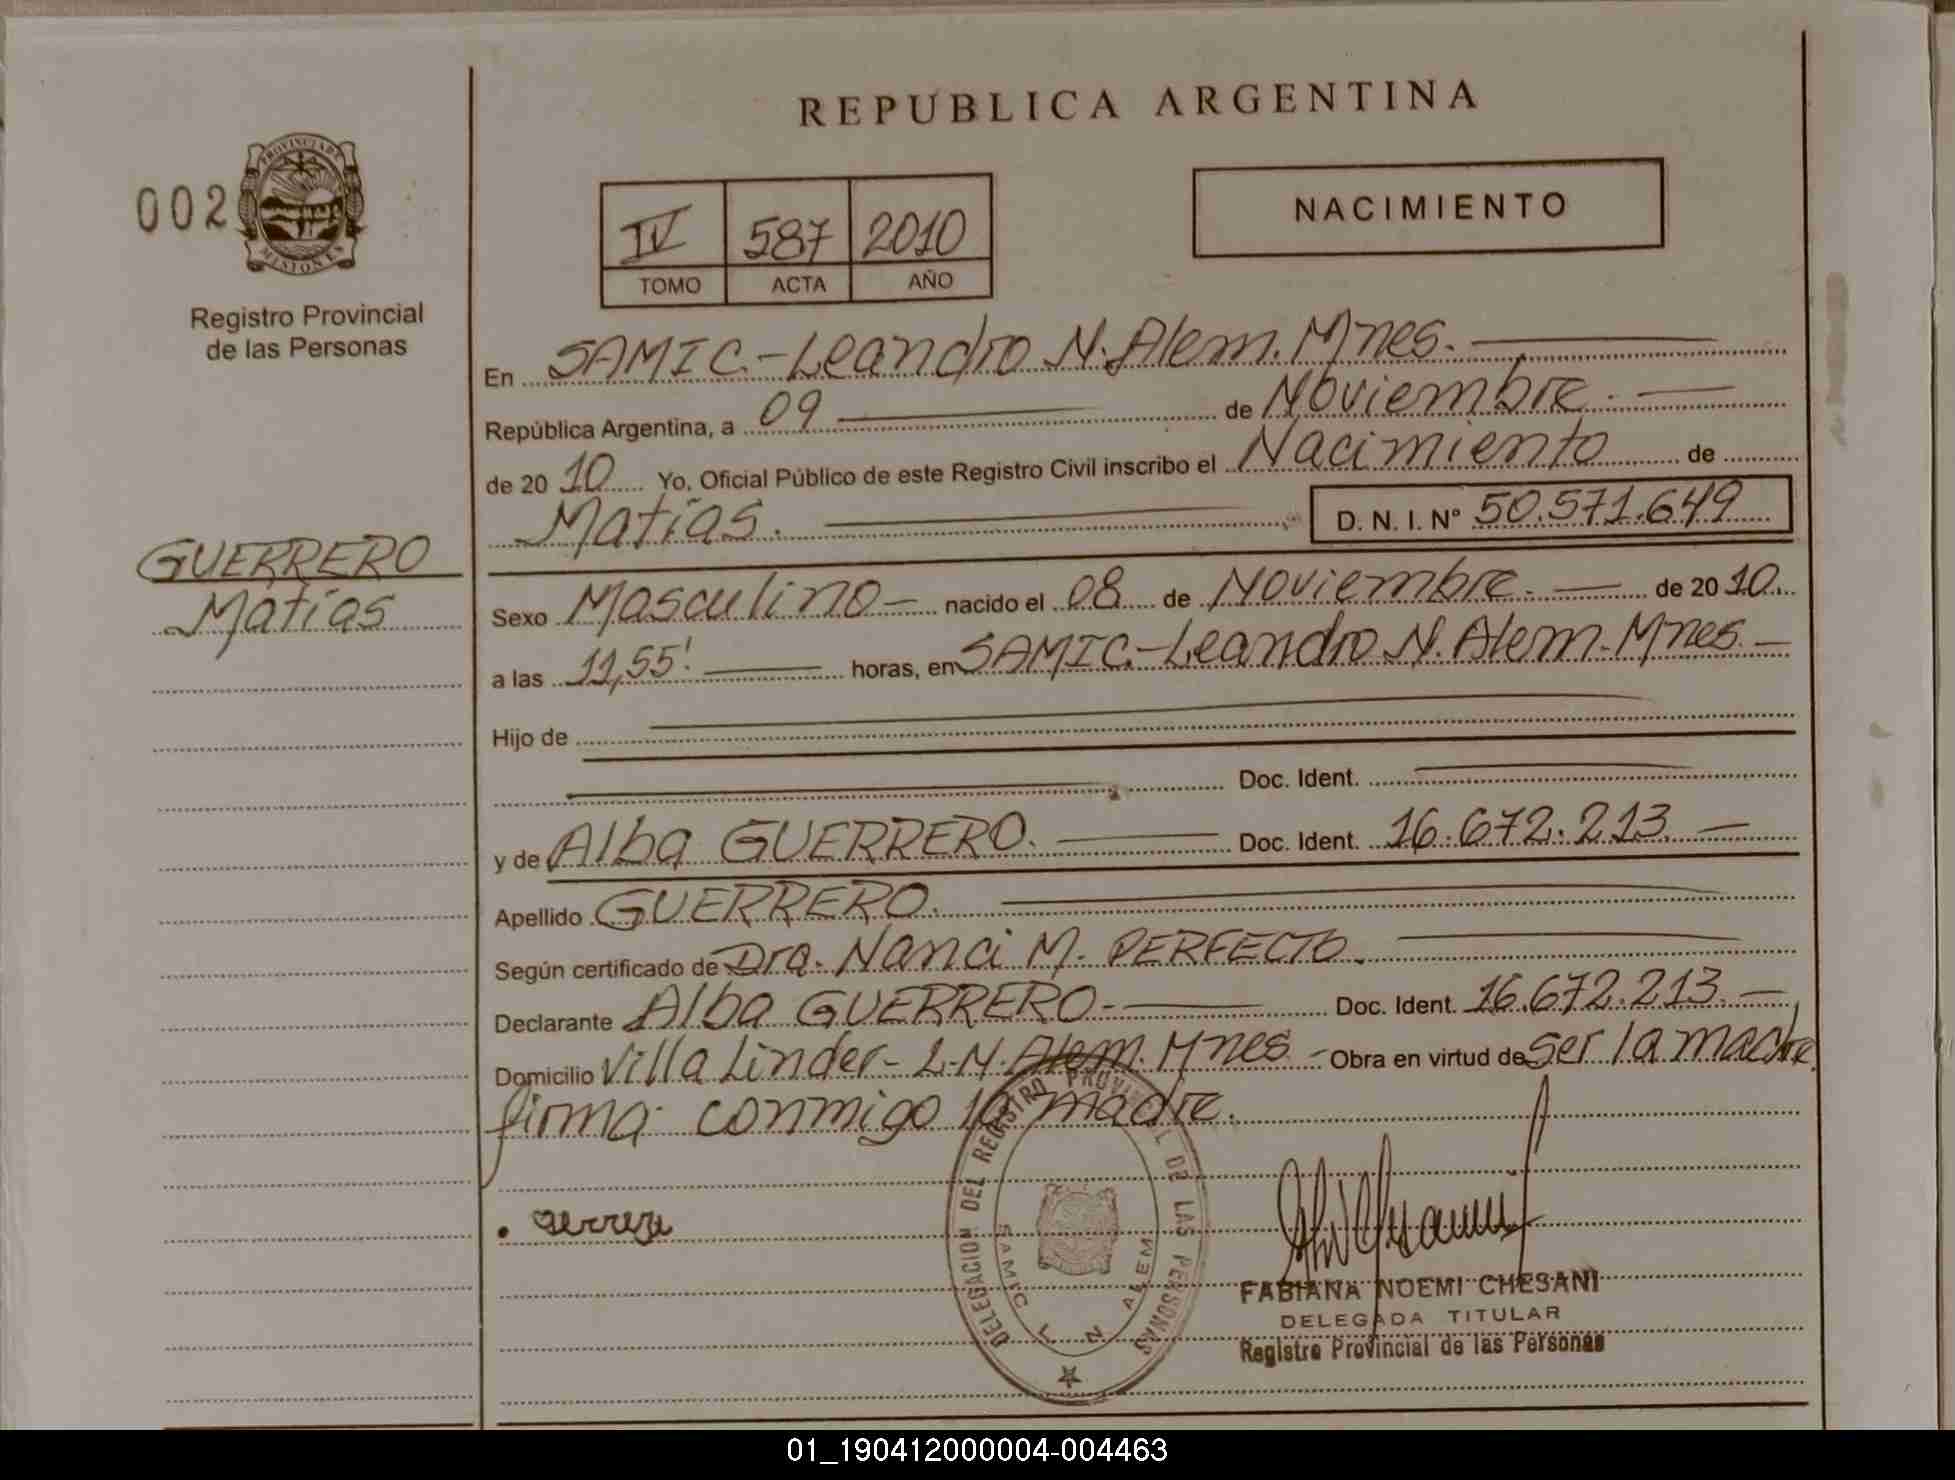 REPUBLICA ARGENTINA
002
PROVINCIA DE
MISIONES
Registro Provincial
de las Personas
IV 587 2010
TOMO ACTA AÑO
NACIMIENTO
En SAMIC.-Leandro N. Alem. Mnes.
República Argentina, a 09 de Noviembre.
de 20 10 Yo, Oficial Público de este Registro Civil inscribo el Nacimiento de
Matías. D. N. I. Nº 50.571.649
GUERRERO
Matías
Sexo Masculino nacido el 08 de Noviembre. de 20 10
a las 11,55' horas, en SAMIC.-Leandro N. Alem. Mnes.
Hijo de
Doc. Ident.
y de Alba GUERRERO. Doc. Ident. 16.672.213
Apellido GUERRERO.
Según certificado de Dra. Nanci M. PERFECTO.
Declarante Alba GUERRERO- Doc. Ident. 16.672.213
Domicilio Villa Linder- L.N. Alem. Mnes - Obra en virtud de ser la madre
firma conmigo la madre.
DELEGACION DEL REGISTRO PROVINCIAL DE LAS PERSONAS
SAMIC L N ALEM
FABIANA NOEMI CHESANI
DELEGADA TITULAR
Registro Provincial de las Personas
01_190412000004-004463